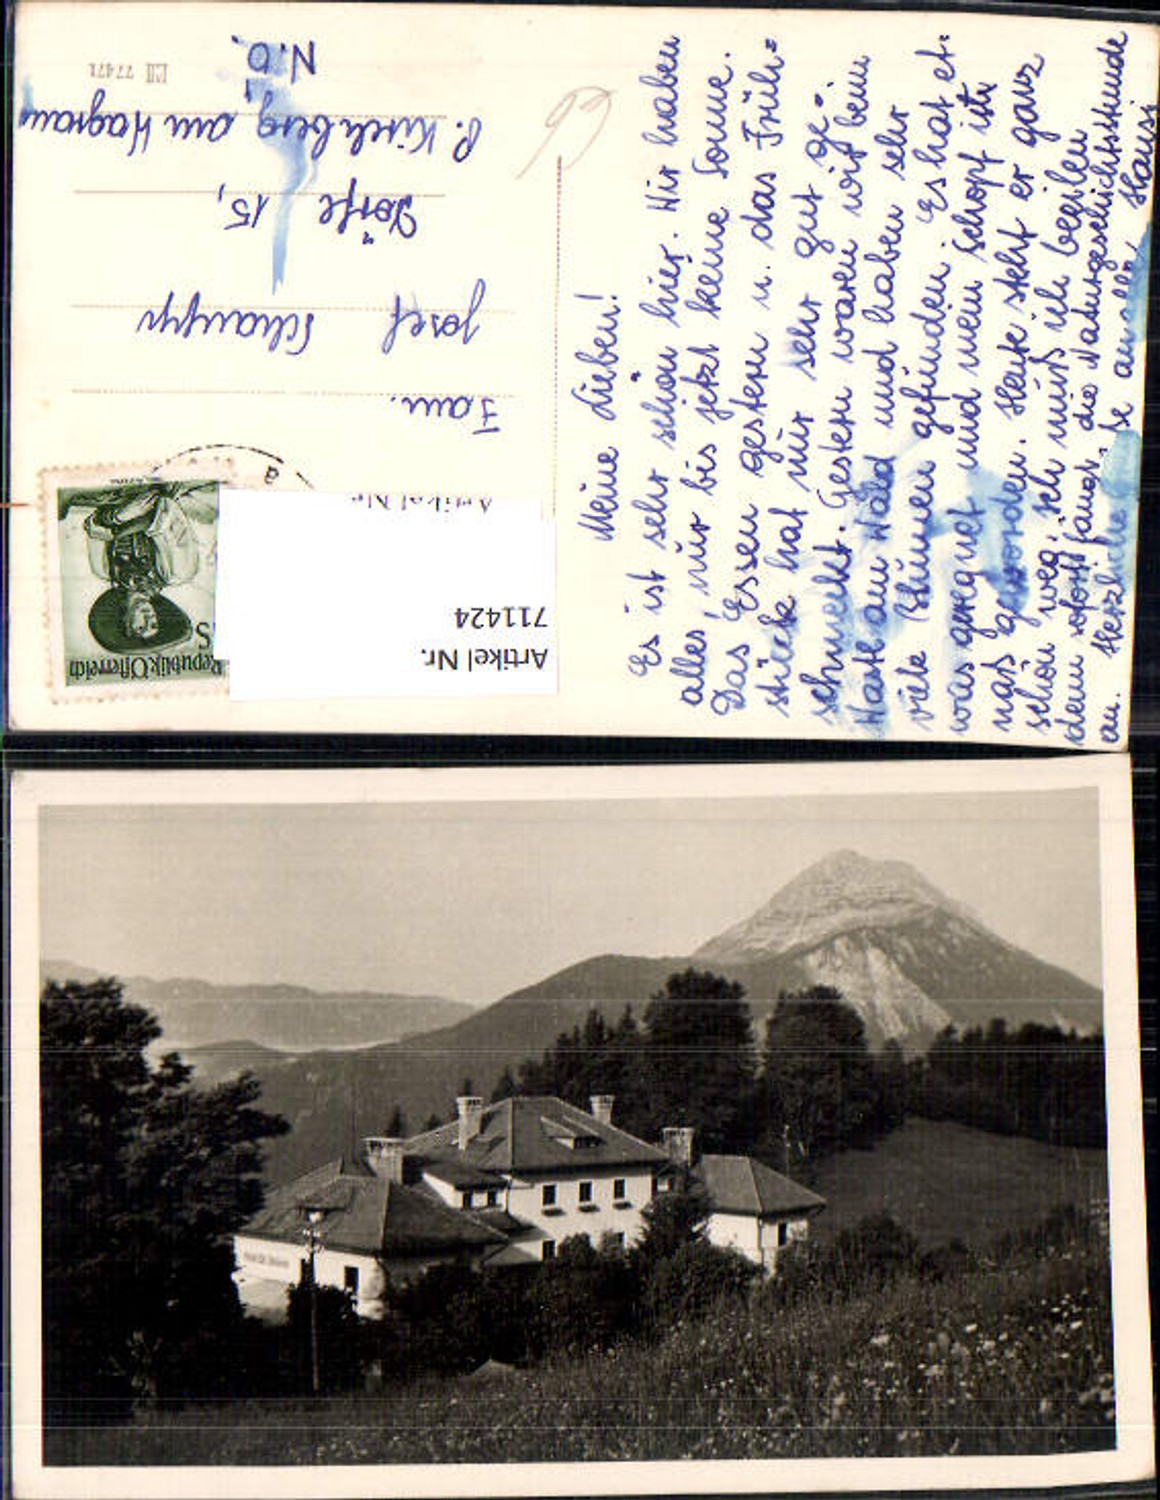 Meine Lieben!
Es ist sehr schön hier. Wir haben
alles, nur bis jetzt keine Sonne.
Das Essen gestern u. das Früh=
stück hat mir sehr gut ge=
schmeckt. Gestern waren wir beim
Haste am Wald und haben sehr
viele Blumen gefunden. Es hat et=
was geregnet und mein Schopf ist
naß geworden. Heute steht er ganz
schön weg. Ich muß ich beeilen
denn sofort fängt die Naturgeschichtsstunde
an. Herzliche an alle Hansi
Fam.
Josef Schaupp
Dörfe 15,
P. Kirchberg am Wagram
N.Ö.
77471
Republik Österreich
S
a
Artikel Nr.
Artikel Nr.
711424